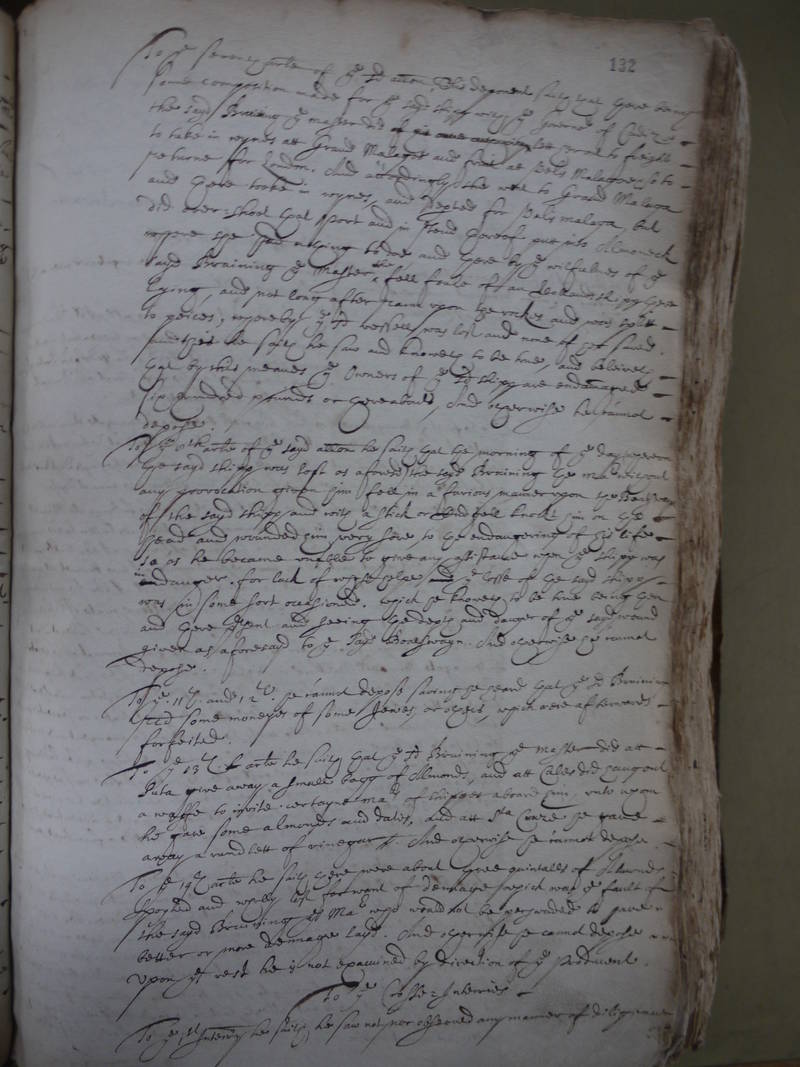 132
To the seventh arte of the sd allon, this deponent saith that there being
some composition made for the sayd shipp with the Governr of Cadiz
the sayd Bruining the master did serve to freight
to take in reyns att Grand Malaga and fruit at Vels Malaga so to
returne for London. And accordingly she went to Grand Malaga
and there tooke in reynes, and depted for Velsmalaga, but
did over-shoot that port and in stead thereof put into Almoneck
where she had nothing to doe and there by the wilfulnes of the
sayd Bruining the Master, fell foule of an Hollands shipp there
lying, and not long after came upon the rockes and was splitt
to peices, whereby the sd vessell was lost and none of her saved.
he saith he saw and knoweth to be true, and beleiveth
that by this meanes the Owners of the sd shipp are endamaged
six hundred pounds or thereabouts, And otherwise he cannot
depose.
To the arte of the sayd allon he saith that the morning of the day whereon
the said shipp was lost as aforesd the sayd Bruining the mar without
any provocation given him fell in a furious manner upon the Boatswayn
of the sayd shipp and with a stick or knockt him on the
head and wounded him very sore to the endangering of his life
so as he became unable to give any assistance when the shipp was
in danger. for lack of whose helpe the losse of the said shipp
was in some sort occasioned. which he knoweth to be true being then
and there psent and seeing the depth and danger of the sayd wound
given as aforesayd to the sayd Boatswayn. And otherwise he cannot
depose.
To the 11th and 12th he cannot depose saving he heard that the sd Bruining
some moneyes of some Jewes, or others, which were afterwards
forfeited.
To the 13th arte he saith that the sd Bruining the master did att
give away a smale bagg of Almonds, and att Cales did hang out
a waffe to invite certayne mars of shippes aboard him, unto whom
he gave some almonds and dates, and att Sta Cruze he gave
away a rundlett of vinegar. And otherwise he cannot depose
To the 19th arte he saith there were about three quintalls of Almonds
spoyled and wholly lost for want of dennage which was the fault of
the sayd Bruining the Mar who would not be perswaded to have
better or more dennage layd. And otherwise he cannot depose
Upon the rest he is not examined by direction of the producent.
To the Crosse-Interries
To the 1st Interry he saith he saw not nor observed any manner of diligence